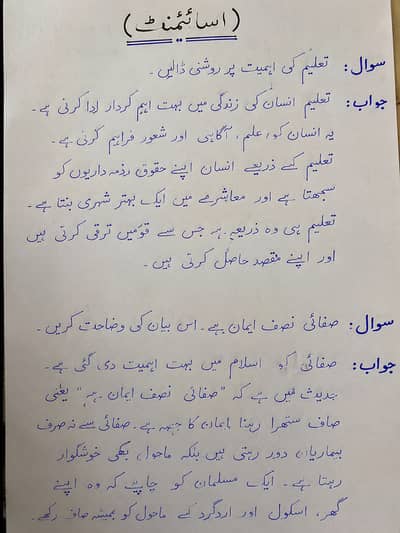 (اسائمنٹ)
سوال: تعلیم کی اہمیت پر روشنی ڈالیں۔
جواب: تعلیم انسان کی زندگی میں بہت اہم کردار ادا کرتی ہے۔
یہ انسان کو، علم، آگاہی اور شعور فراہم کرتی ہے۔
تعلیم کے ذریعے انسان اپنے حقوق وذمہ داریوں کو
سمجھتا ہے اور معاشرے میں ایک بہتر شہری بنتا ہے۔
تعلیم ہی وہ ذریعہ ہے جس سے قومیں ترقی کرتی ہیں
اور اپنے مقصد حاصل کرتی ہیں۔
سوال: صفائی نصف ایمان ہے۔ اس بیان کی وضاحت کریں۔
جواب: صفائی کو اسلام میں بہت اہمیت دی گئی ہے۔
حدیث میں ہے کہ "صفائی نصف ایمان ہے" یعنی
صاف ستھرا رہنا ایمان کا حصہ ہے۔ صفائی سے نہ صرف
بیماریاں دور رہتی ہیں بلکہ ماحول بھی خوشگوار
رہتا ہے۔ ایک مسلمان کو چاہیے کہ وہ اپنے
گھر، اسکول اور اردگرد کے ماحول کو ہمیشہ صاف رکھے۔